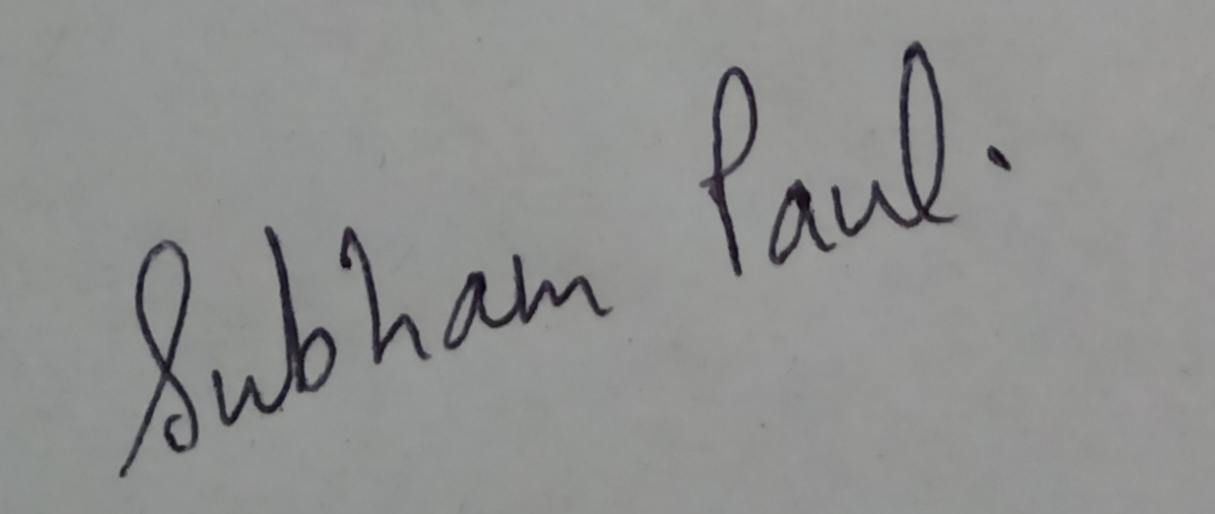 Subham Paul.